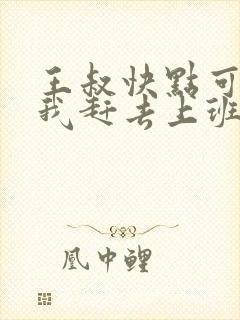 王叔快點可
我赶去上班
凰中鲤